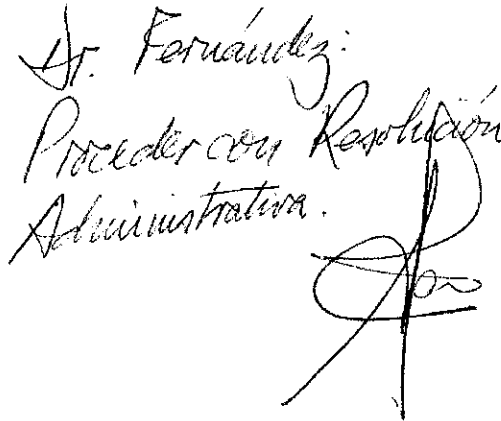 Dr. Fernández:
Proceder con Resolución
Administrativa.